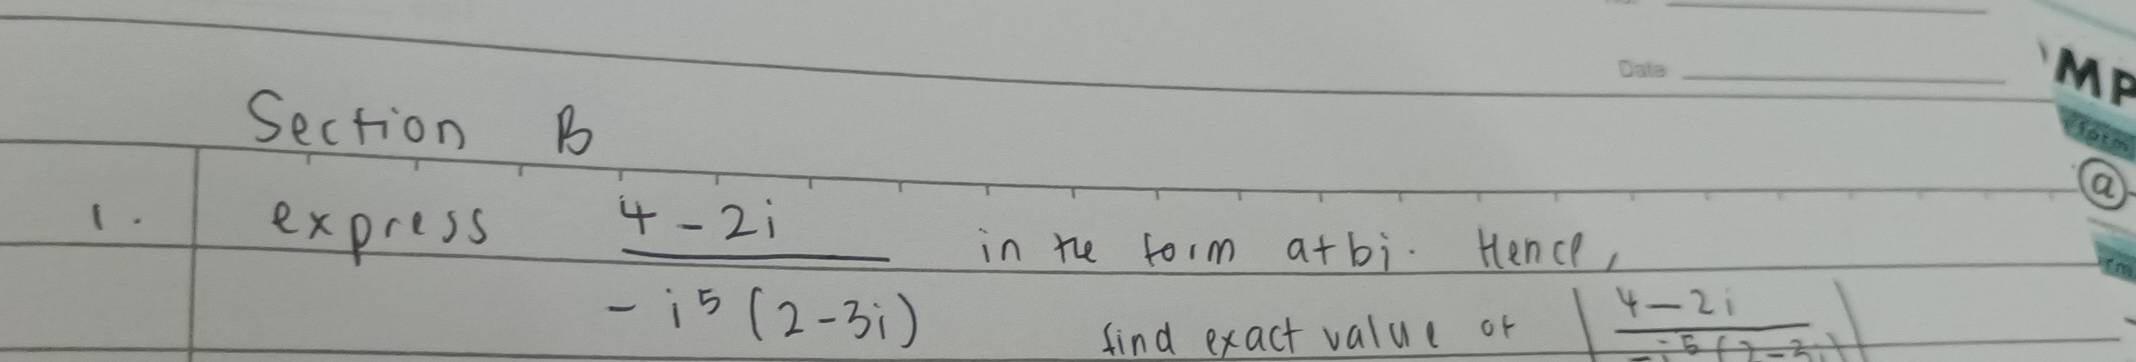 Date
'MP
Section B
@
1. express 4 - 2i / - i⁵ (2 - 3i) in the form a+bi. Hence,
find exact value of | 4 - 2i / - i⁵ (2 - 3i) |